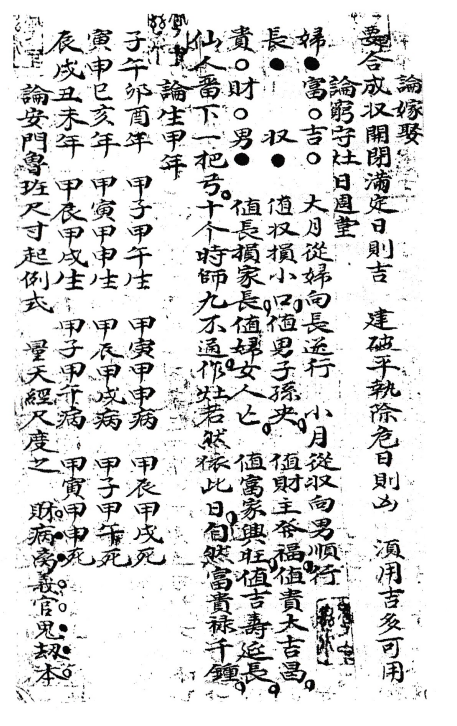 論嫁娶
要合成収開閉滿定日則吉 建破平執除危日則凶 須用吉多可用
論竆守灶日週堂
婦●富○吉○ 大月從婦向長逆行 小月從収向男順行
長● 収● 值収損小口值男子孫央 值財主發福值貴大吉昌
貴○財○男● 值長損家長值婦女人亡 值富家興旺值吉壽延長
仙人畨下一把弓 十个時師九不通 作灶若然依此日 自然富貴禄千鍾
論生甲年
子午卯酉年 甲子甲午生 甲寅甲申病 甲辰甲戌死
寅申巳亥年 甲寅甲申生 甲辰甲戌病 甲子甲午死
辰戌丑未年 甲辰甲戌生 甲子甲午病 甲寅甲申死
論安門魯班尺寸起例式 量天經尺度之 財○病●离●義○官○鬼●劫●本○